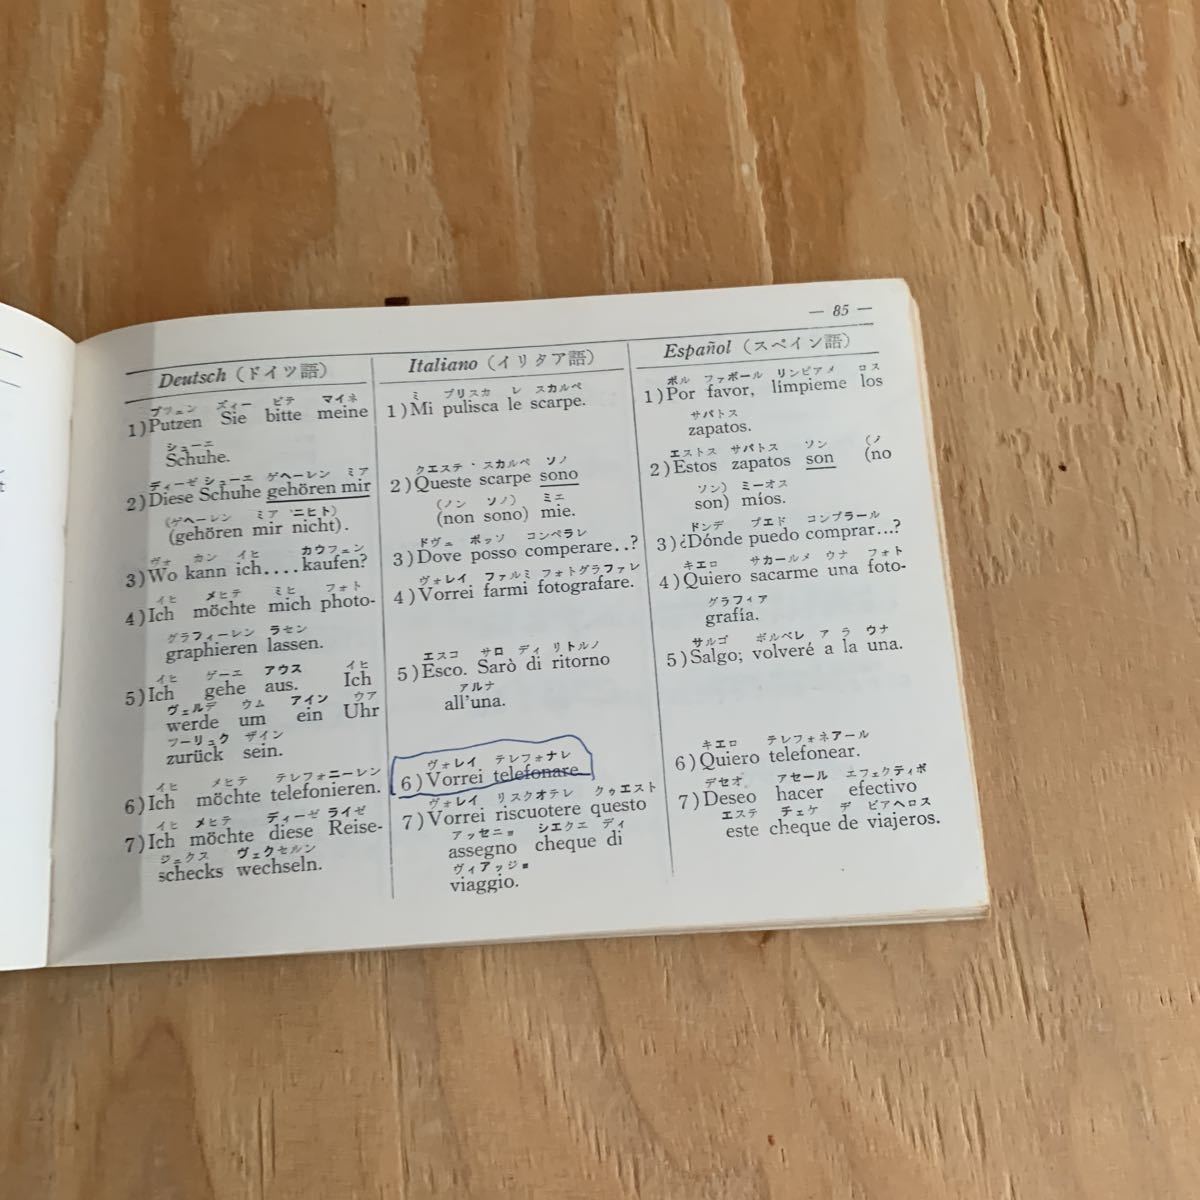 — 85 —
Deutsch (ドイツ語)
プッェン ズィー ビテ マイネ
1) Putzen Sie bitte meine
シューエ
Schuhe.
ディーゼ シューエ ゲヘーレン ミア
2) Diese Schuhe gehören mir
(ゲヘーレン ミア ニヒト)
(gehören mir nicht).
ヴォ カン イヒ カウフェン
3) Wo kann ich.... kaufen?
イヒ メヒテ ミヒ フォト
4) Ich möchte mich photo-
グラフィーレン ラセン
graphieren lassen.
イヒ ゲーエ アウス イヒ
5) Ich gehe aus. Ich
ヴェルデ ウム アイン ウア
werde um ein Uhr
ツーリュク ザイン
zurück sein.
イヒ メヒテ テレフォニーレン
6) Ich möchte telefonieren.
イヒ メヒテ ディーゼ ライゼ
7) Ich möchte diese Reise-
シェクス ヴェクセルン
schecks wechseln.
Italiano (イリタア語)
ミ プリスカ レ スカルペ
1) Mi pulisca le scarpe.
クエステ・スカルペ ソノ
2) Queste scarpe sono
(ノン ソノ) ミエ
(non sono) mie.
ドヴェ ポッソ コンペラレ
3) Dove posso comperare..?
ヴォレイ ファルミ フォトグラファレ
4) Vorrei farmi fotografare.
エスコ サロ ディ リトルノ
5) Esco. Sarò di ritorno
アルナ
all'una.
ヴォレイ テレフォナレ
6) Vorrei telefonare.
ヴォレイ リスクオテレ クゥエスト
7) Vorrei riscuotere questo
アッセニョ シエクエ ディ
assegno cheque di
ヴィアッジョ
viaggio.
Español (スペイン語)
ポル ファボール リンピアメ ロス
1) Por favor, límpieme los
サパトス
zapatos.
エストス サパトス ソン (ノ
2) Estos zapatos son (no
ソン) ミーオス
son) míos.
ドンデ プエド コンプラール
3) ¿Dónde puedo comprar...?
キエロ サカールメ ウナ フォト
4) Quiero sacarme una foto-
グラフィア
grafía.
サルゴ ボルベレ ア ラ ウナ
5) Salgo; volveré a la una.
キエロ テレフォネアール
6) Quiero telefonear.
デセオ アセール エフェクティボ
7) Deseo hacer efectivo
エステ チェケ デ ビアヘロス
este cheque de viajeros.